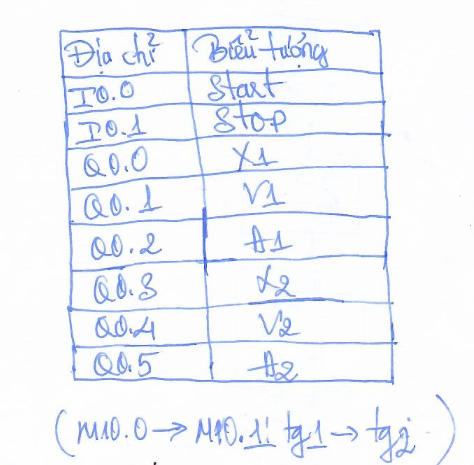 Địa chỉ Biểu tượng
I0.0 Start
I0.1 Stop
Q0.0 X1
Q0.1 V1
Q0.2 A1
Q0.3 X2
Q0.4 V2
Q0.5 A2
(M10.0 → M10.1: tg1 → tg2)